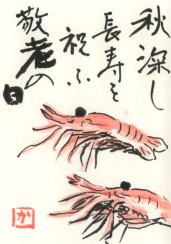 秋深し
長寿を
祝ふ
敬老の
日
か